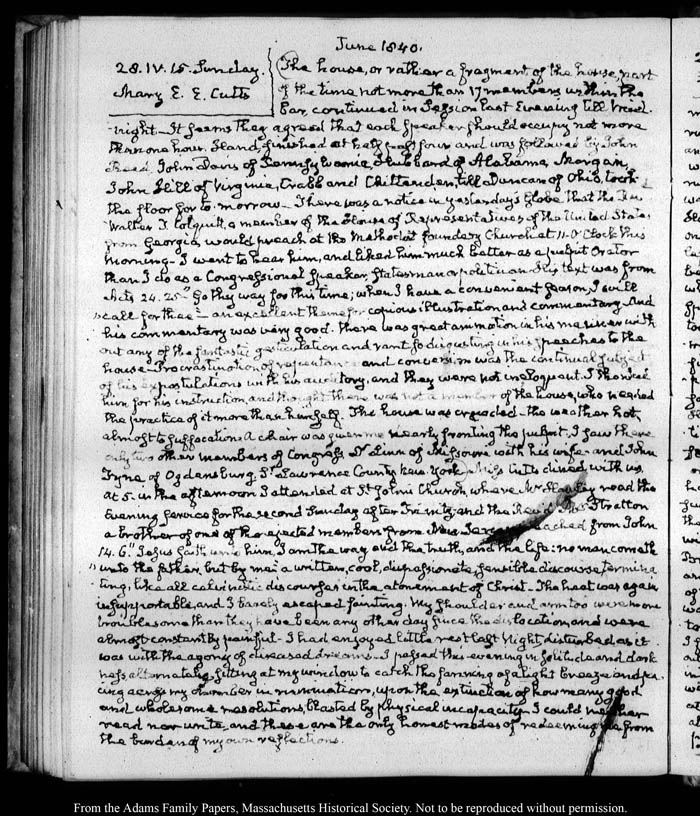 June 1840.
28. IV. 15. Sunday.
Mary E. E. Cutts
The house, or rather a fragment of the house, part
of the time not more than 17 members within the
bar, continued in Session last Evening till mid-
night. It seems they agreed that each Speaker should occupy not more
than one hour. Hand, finished at half past four and was followed by John
Reed, John Davis of Pennsylvania, Hubbard of Alabama, Morgan,
John Hill of Virginia, Crabb and Chittenden, till Duncan of Ohio, took
the floor for to-morrow. There was a notice in yesterday's Globe that the Rev.
Walter T. Colquitt, a member of the House of Representatives of the United States
from Georgia, would preach at the Methodist foundery Church at 11. O'Clock this
morning. I went to hear him, and liked him much better as a pulpit Orator
than I do as a Congressional Speaker, Statesman or politician. His text was from
Acts 24. 25. Go thy way for this time; when I have a convenient season, I will
call for thee — an excellent theme for copious illustration and commentary. And
his commentary was very good. There was great animation in his manner with
out any of the fantastic gesticulation and rant so disgusting in his speeches to the
house. Procrastination of repentance and conversion was the continual subject
of his expostulations with his auditory, and they were not ineloquent. I thanked
him for his instruction, and thought there was not a member of the house, who needed
the practice of it more than himself. The house was crowded — the weather hot,
almost to suffocation. A chair was given me nearly fronting the pulpit. I saw there
only two other members of Congress, Dr. Linn of Missouri with his wife — and John
Fine of Ogdensburg, St. Lawrence County, New-York. Miss Cutts dined with us,
at 5. in the afternoon I attended at St. John's Church, where Mr. Hawley read the
Evening service for the second Sunday after Trinity, and the Revd. Mr. Stratton
a brother of one of the ejected members from New Jersey preached from John
14. 6. Jesus saith unto him, I am the way and the truth, and the life: no man cometh
unto the father, but by me: a written, cool, dispassionate, sensible discourse termina
ting, like all calvinistic discourses in the atonement of Christ. The heat was again
insupportable, and I barely escaped fainting. My shoulder and arm too were more
troublesome than they have been any other day since the dislocation, and were
almost constantly painful. I had enjoyed little rest last Night, disturbed as it
was with the agony of diseased dreams. I passed this evening in solitude and dark
ness alternately sitting at my window to catch the fanning of a light breeze and pa-
cing across my chamber in rumination, upon the extinction of how many good
and wholesome resolutions, blasted by physical incapacity. I could neither
read nor write, and these are the only honest modes of redeeming life from
the burden of my own reflections.
From the Adams Family Papers, Massachusetts Historical Society. Not to be reproduced without permission.